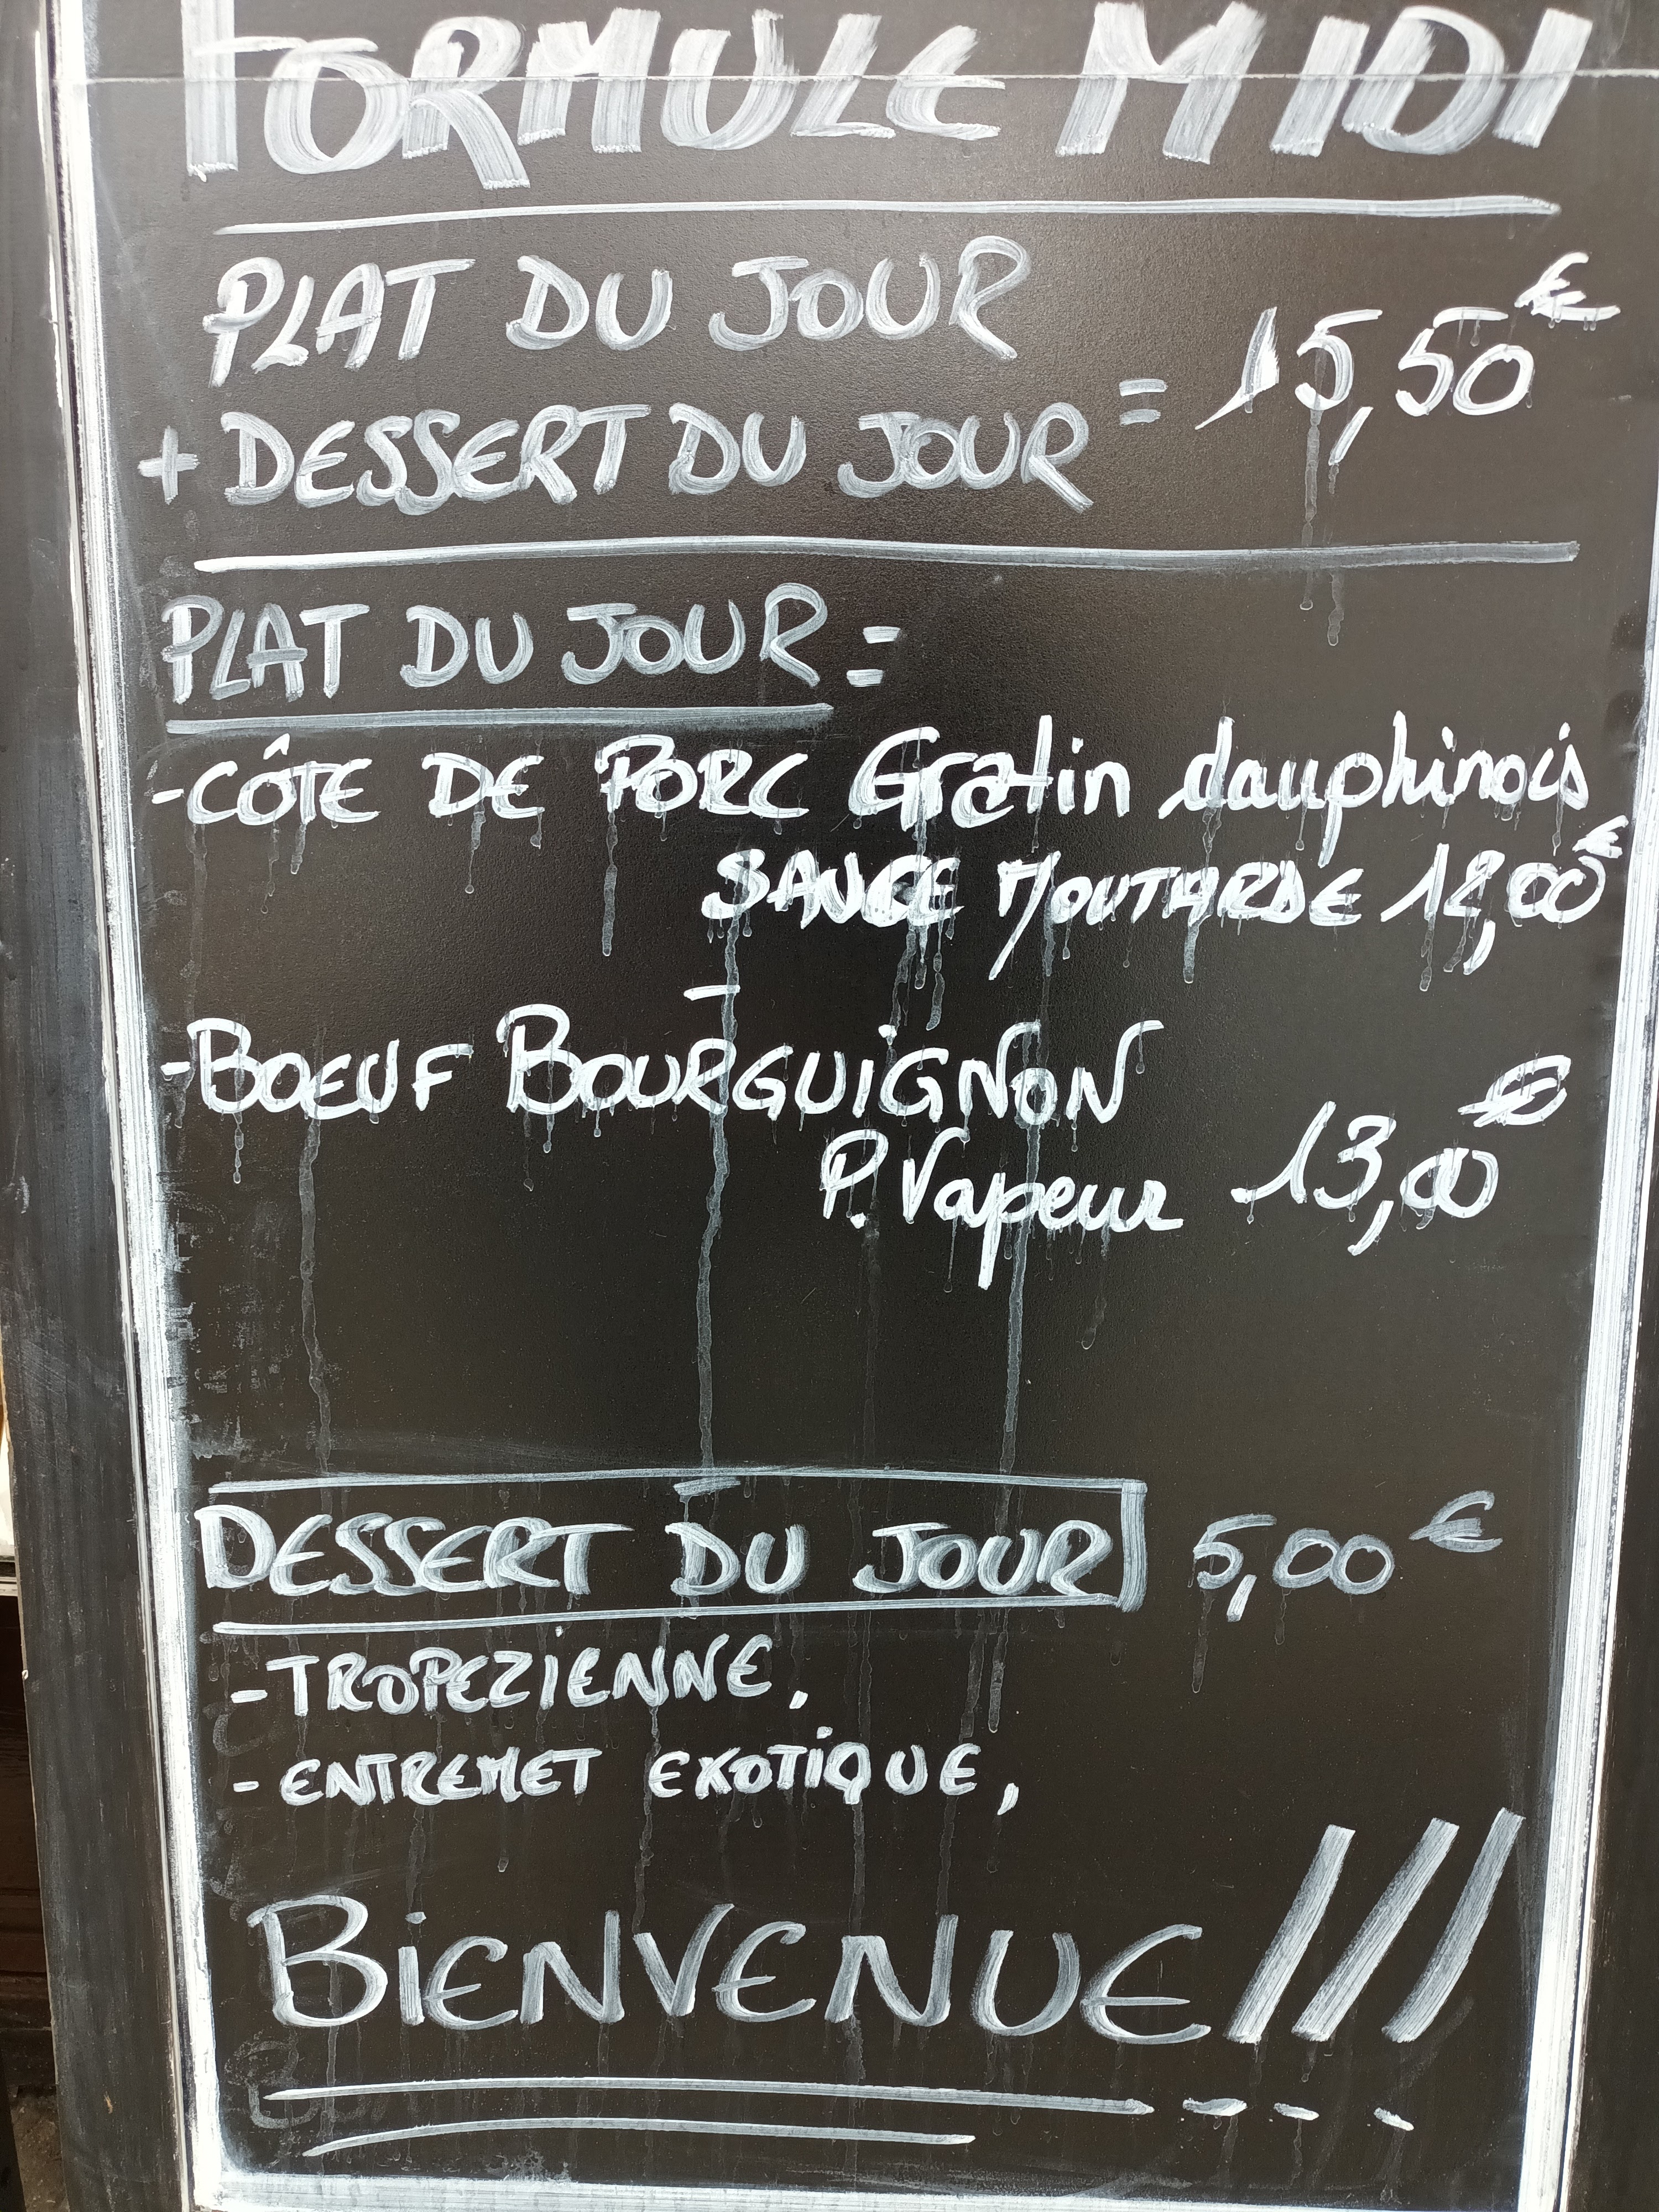 FORMULE MIDI
PLAT DU JOUR
+ DESSERT DU JOUR = 15,50€
PLAT DU JOUR =
- CÔTE DE PORC Gratin dauphinois
SAUCE MOUTARDE 12,00€
- BOEUF BOURGUIGNON
P. Vapeur 13,00€
DESSERT DU JOUR 5,00€
- TROPEZIENNE,
- ENTREMET EXOTIQUE,
BIENVENUE !!!